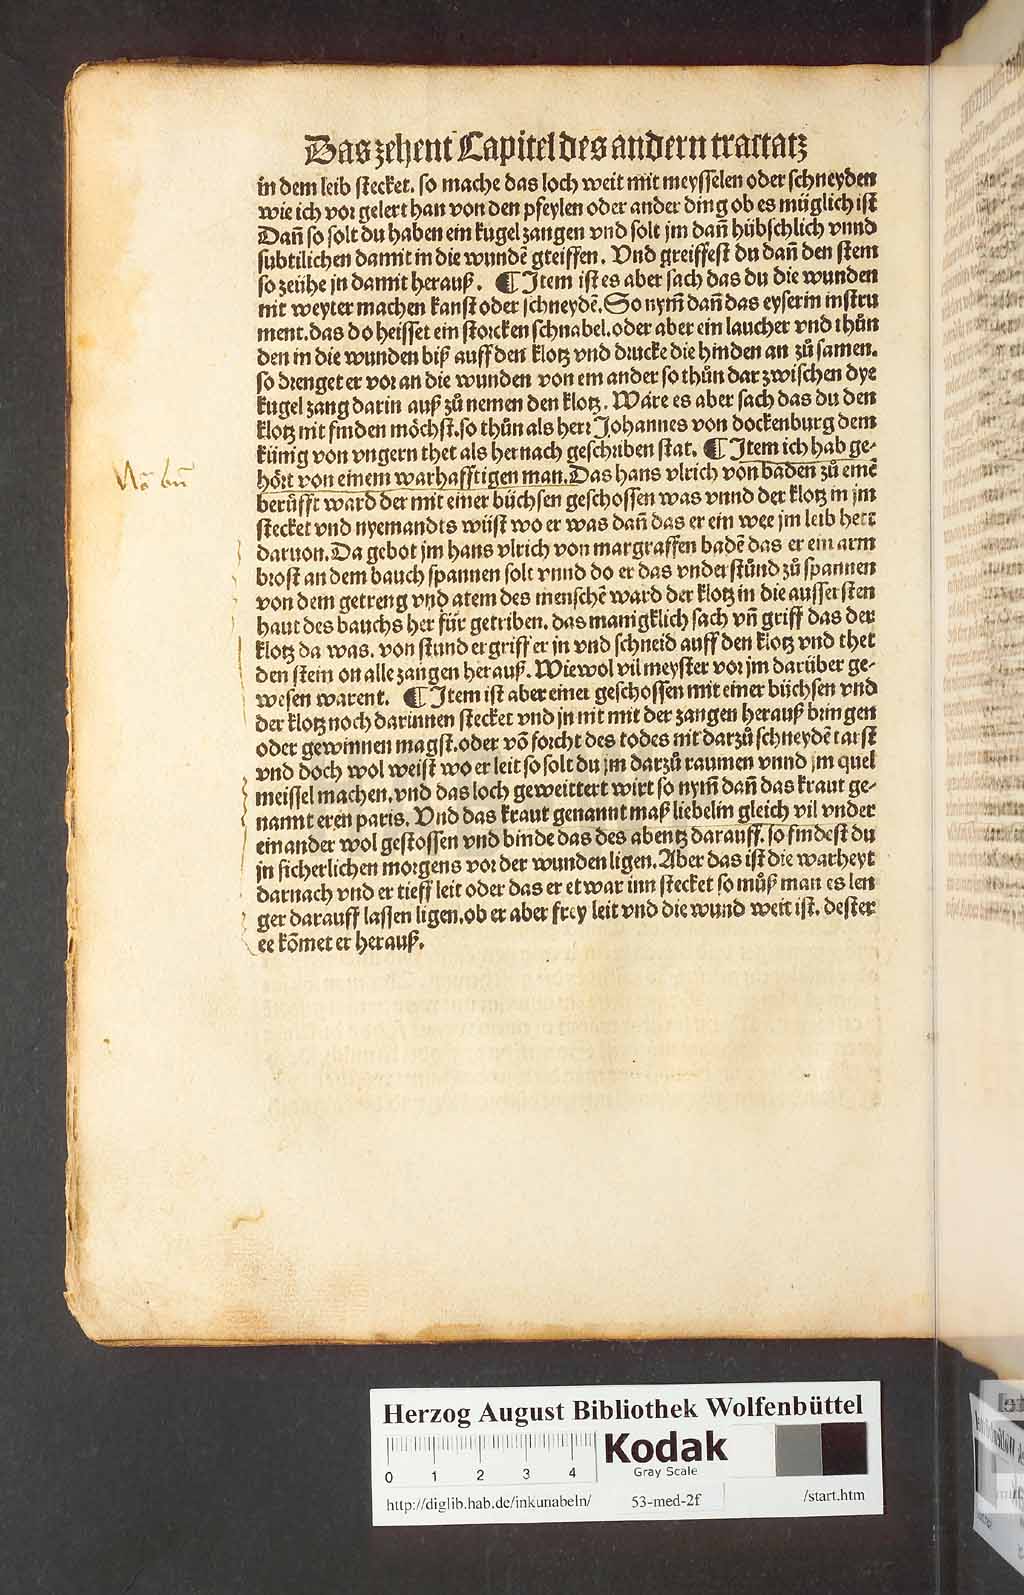 Das zehent Capitel des andern tractatz
in dem leib stecket. so mache das loch weit mit meysselen oder schneyden
wie ich vor gelert han von den pfeylen oder ander ding ob es müglich ist
Dañ so solt du haben ein kugel zangen vnd solt jm dañ hübschlich vnnd
subtilichen damit in die wundē gteiffen. Vnd greiffest du dañ den stem
so zeühe jn damit herauß. ¶ Item ist es aber sach das du die wunden
nit weyter machen kanst oder schneydē. So nym̄ dañ das eyserin instru
ment. das do heisset ein storcken schnabel. oder aber ein laucher vnd thůn
den in die wunden biß auff den klotz vnd drucke die hinden an zů samen.
so drenget er vor an die wunden von em ander so thůn dar zwischen dye
kugel zang darin auß zů nemen den klotz. Wäre es aber sach das du den
klotz nit finden möchst. so thůn als herr Johannes von dockenburg dem
künig von vngern thet als her nach geschriben stat. ¶ Item ich hab ge-
hört von einem warhafftigen man. Das hans vlrich von baden zů einē
berůfft ward der mit einer büchsen geschossen was vnnd der klotz in jm
stecket vnd nyemandts wüst wo er was dañ das er ein wee jm leib hett
daruon. Da gebot jm hans vlrich von margraffen badē das er ein arm
brost an dem bauch spannen solt vnnd do er das vnderstůnd zů spannen
von dem getreng vnd atem des menschē ward der klotz in die aussersten
haut des bauchs her für getriben. das manigklich sach vñ griff das der
klotz da was. von stund ergriff er jn vnd schneid auff den klotz vnd thet
den stein on alle zangen herauß. Wiewol vil meyster vor jm darüber ge-
wesen warent. ¶ Item ist aber einer geschossen mit einer büchsen vnd
der klotz noch darinnen stecket vnd jn nit mit der zangen herauß bringen
oder gewinnen magst. oder vō forcht des todes nit darzů schneydē tarst
vnd doch wol weist wo er leit so solt du jm darzů raumen vnnd jm quel
meissel machen. vnd das loch geweittert wirt so nym̄ dañ das kraut ge-
nannt eren paris. Vnd das kraut genannt maß liebelin gleich vil vnder
ein ander wol gestossen vnd binde das des abentz darauff. so findest du
jn sicherlichen morgens vor der wunden ligen. Aber das ist die warheyt
darnach vnd er tieff leit oder das er etwar inn stecket so můß man es len
ger darauff lassen ligen. ob er aber frey leit vnd die wund weit ist. dester
ee kōmet er herauß.
Herzog August Bibliothek Wolfenbüttel
0 1 2 3 4
Kodak
Gray Scale
http://diglib.hab.de/inkunabeln/ 53-med-2f /start.htm